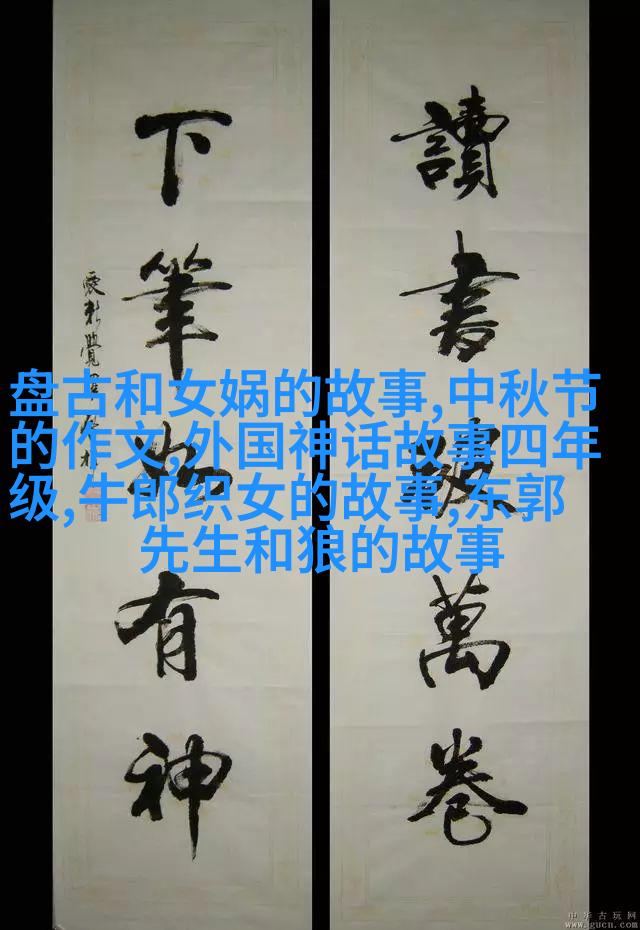 讀書破萬卷
下筆如有神
盘古和女娲的故事,中秋节
的作文,外国神话故事四年
级,牛郎织女的故事,东郭
先生和狼的故事
中华古玩网
www.gucn.com